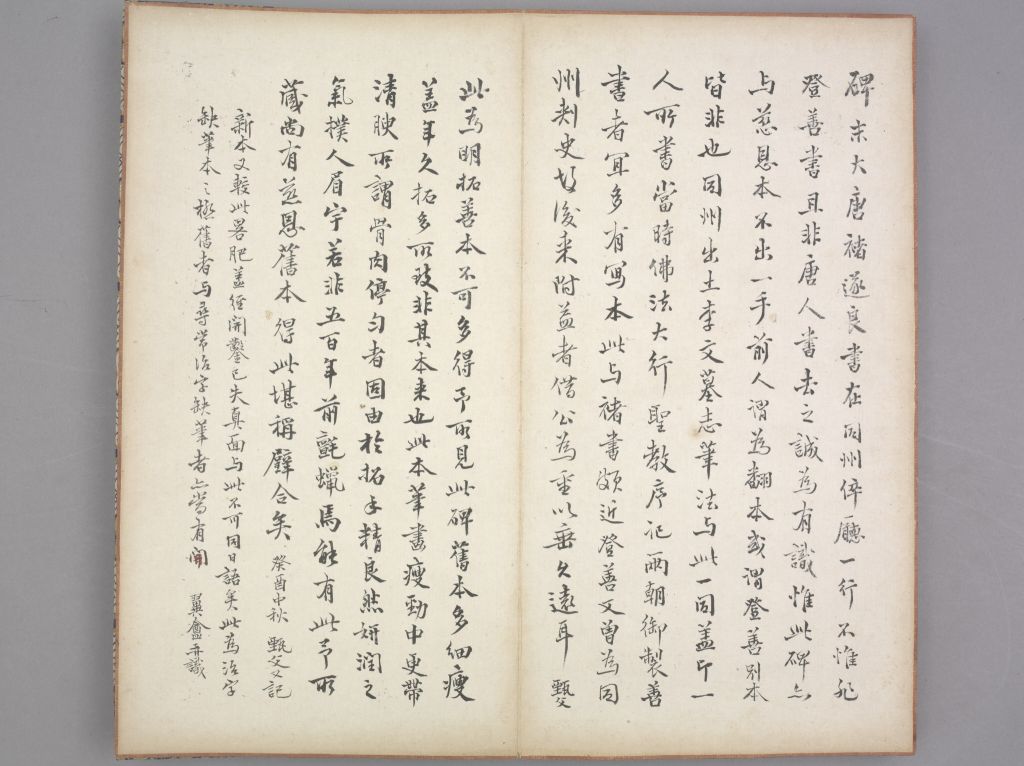 碑末大唐褚遂良書在同州倅廳一行不惟非
登善書且非唐人書去之誠為有識惟此碑亦
与慈恩本不出一手前人謂為翻本或謂登善别本
皆非也同州出土李文墓志筆法与此一同盖即一
人所書當時佛法大行聖教序記兩朝御製善
書者宜多有寫本此与褚書頗近登善又曾為同
州刺史故後来附益者借公為重以垂久遠耳 甄父
此為明拓善本不可多得予所見此碑舊本多細瘦
盖年久拓多所致非其本来也此本筆畫瘦勁中更帶
清腴所謂骨肉停匀者固由於拓手精良然妍潤之
氣撲人眉宇若非五百年前氈蠟焉能有此予所
藏尚有慈恩舊本得此堪稱璧合矣 癸酉中秋 甄父又記
新本又較此畧肥盖經開鑿已失真面与此不可同日語矣此為治字
缺筆本之極舊者与尋常治字缺筆者亦當有間 翼盦并識